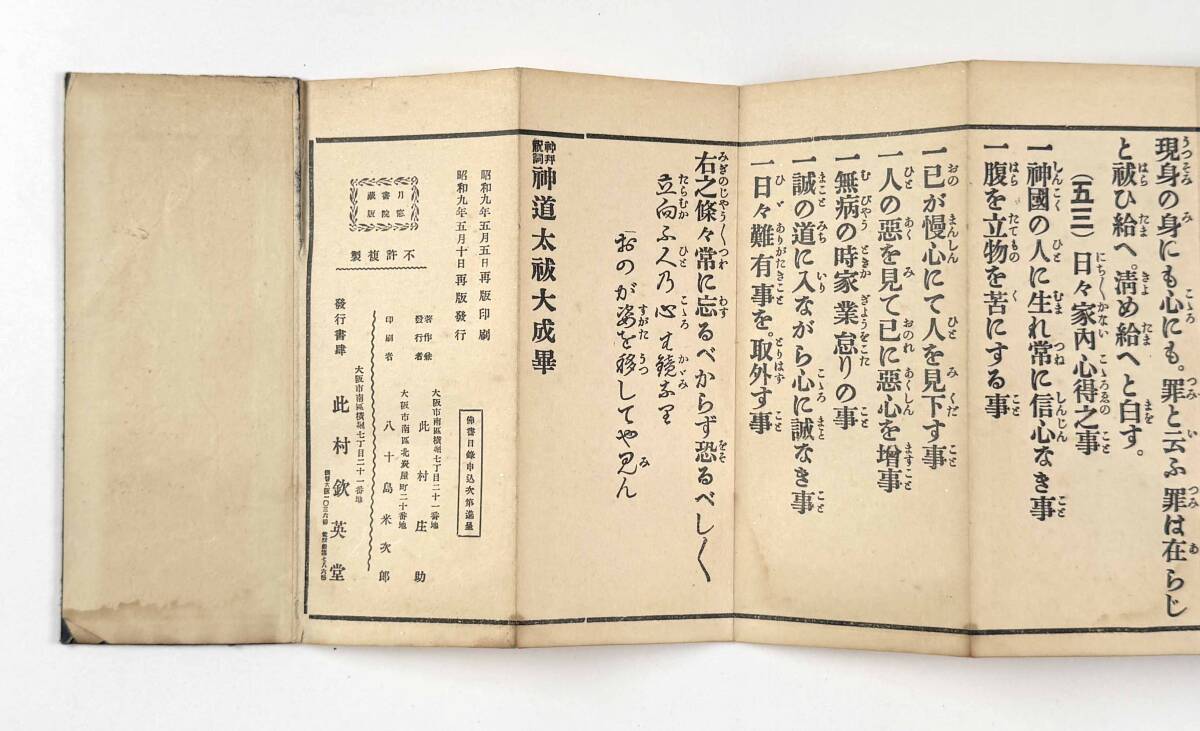 現身の身にも心にも。罪と云ふ罪は在らじ
と祓ひ給へ。淸め給へと白す。
(五三)日々家內心得之事
一神國の人に生れ常に信心なき事
一腹を立物を苦にする事
一己が慢心にて人を見下す事
一人の惡を見て已に惡心を增事
一無病の時家業怠りの事
一誠の道に入ながら心に誠なき事
一日々難有事を。取外す事
右之條々常に忘るべからず恐るべしく
立向ふ人乃心は鏡なり
おのが姿を移してや見ん
神拜祝詞 神道太祓大成畢
昭和九年五月五日再版印刷
昭和九年五月十日再版發行
月窓書院藏版
不許複製
佛書目錄申込次第進呈
大阪市南區橫堀七丁目二十一番地
著作兼發行者 此村庄助
大阪市南區北炭屋町二十番地
印刷者 八十島米次郎
大阪市南區橫堀七丁目二十一番地
發行書肆 此村欽英堂